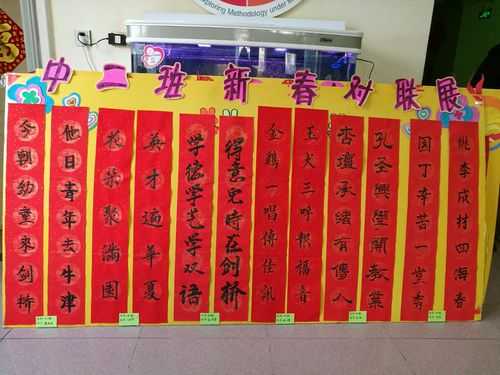 xploring Methodology under
中二班新春对联展
今朝幼童來剑桥
他日青年去牛津
花朵聚满园
英才遍華夏
学德学艺学双语
得意兒时在剑桥
金鷄一唱傳佳訊
玉犬三呼报福音
杏壇承緒有傳人
孔圣興學開教業
园丁辛苦一堂秀
桃李成材四海春